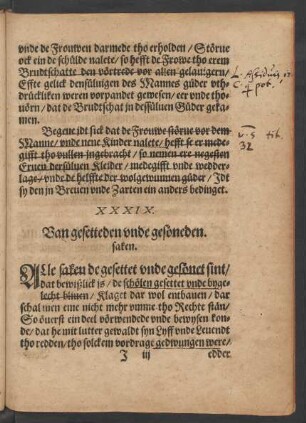 vnde de Frouwen darmede tho erholden / Störue
ock ein de schülde nalete / so hefft de Frowe tho erem
Brudtschatte den vörtrede vor allen gelöuigern /
Effte gelick densüluigen des Mannes güder vth-
drücklicken weren vorpandet gewesen / eer vnde tho-
nörn / dat de Brudtschat in dessüluen Güder geka-
men.
Begeue idt sick dat de Frouwe störue vor dem
Manne / vnde nene Kinder nalete / hefft se er mede-
gifft tho vullen ingebracht / so nemen ere negesten
Eruen dersüluen Kleider / medegifft vnde wedder-
lags / vnde de helffte der wolgewunnen güder / Jdt
sy den jn Breuen vnde Zarten ein anders bedinget.
XXXIX.
Van gesetteden vnde gesöneden.
saken.
ALle saken de gesettet vnde gesönet sint /
dat bewißlick is / de schölen gesettet vnde byge-
lecht blinen / Klaget dar wol enthauen / dar
schal men eme nicht mehr vmme tho Rechte stán /
So öuerst ein deel vörwendede vnde bewysen kon-
de / dat he mit lutter gewaldt syn Lyff vnde Leuendt
tho redden / tho solckem vordrage gedwungen were /
J iij
edder
v. 5 tit.
32